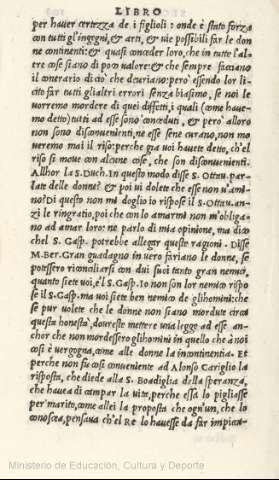 LIBRO
per hauer certezza de i figlioli: onde è stato forza
con tutti gl'ingegni, & arti, & uie possibili far le don
ne continenti: & quasi conceder loro, che in tutte l'al=
tre cose siano di poco ualore: & che sempre facciano
il contrario di cio che deuriano: però essendo lor li=
cito far tutti gli altri errori senza biasimo, se noi le
uorremo mordere di quei diffetti, i quali (come haue=
mo detto) tutti ad esse sono conceduti, & però a loro
non sono disconuenienti, ne esse sene curano, non mo
ueremo mai il riso: perche gia uoi hauete detto, ch'el
riso si moue con alcune cose, che son disconuenienti.
Allhor la S. Duch. In questo modo disse S. Ottau. par
late delle donne? & poi ui dolete che esse non u'ami=
no? Di questo non mi doglio io rispose il S. Ottau. an=
zi le ringratio, poi che con lo amarmi non m'obliga=
no ad amar loro: ne parlo di mia opinione, ma dico
chel S. Gasp. potrebbe allegar queste ragioni. Disse
M. Ber. Gran guadagno in uero fariano le donne, se
potessero riconciliarsi con dui suoi tanto gran nemici,
quanto siete uoi, e'l S. Gasp. Io non son lor nemico rispo
se il S. Gasp. ma uoi siete ben nemico de gli homini: che
se pur uolete che le donne non siano mordute circa
questa honestà, doureste mettere una legge ad esse an=
chor che non mordessero gli homini in quello che à noi
cosi è uergogna, come alle donne la incontinentia. Et
perche non fu cosi conueniente ad Alonso Cariglio la
risposta, che diede alla S. Boadiglia della speranza,
che hauea di campar la uita, perche essa lo pigliasse
per marito, come a lei la proposta che ogn'un, che lo
conoscea, pensaua ch'el Re lo hauesse da far impian=
Ministerio de Educación, Cultura y Deporte